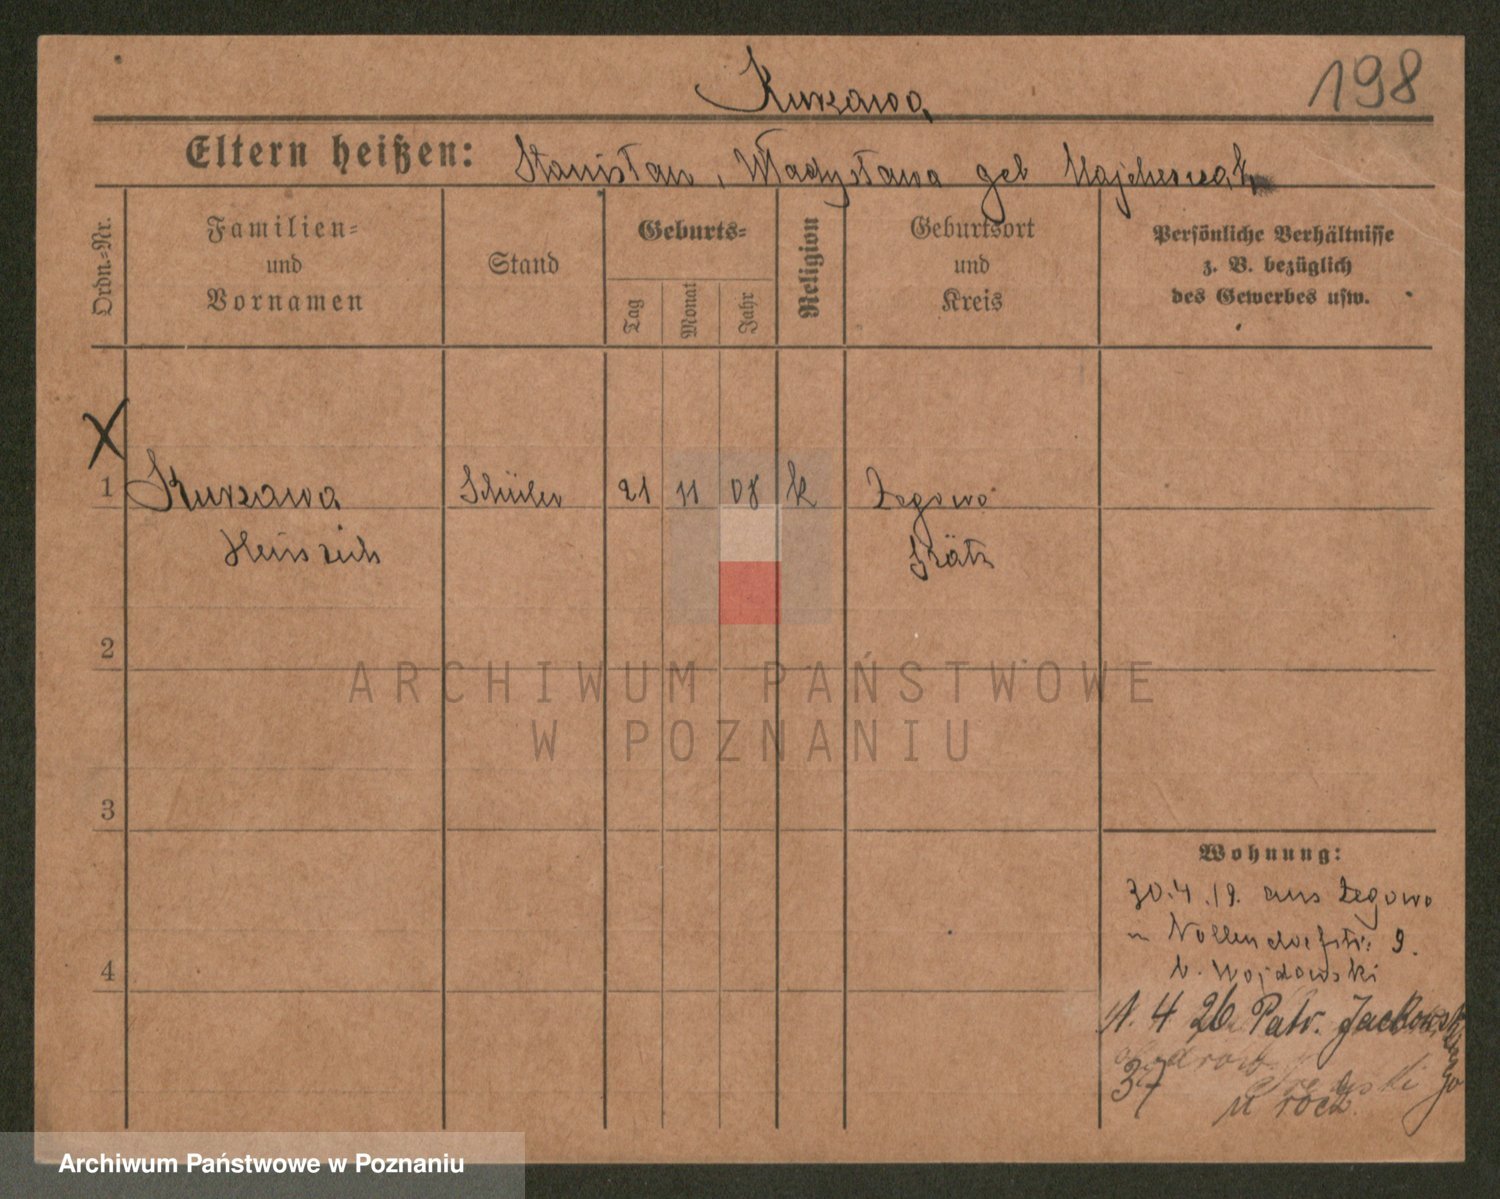 198
Kurzawa
Eltern heißen: Stanisław, Władysława geb Majcherczak
Ordn.-Nr.
Familien- und Vornamen
Stand
Geburts-
Tag
Monat
Jahr
Religion
Geburtsort und Kreis
Persönliche Verhältnisse
z. B. bezüglich
des Gewerbes usw.
X
1 Kurzawa Schüler 21 11 08 k Zegowo
Heinrich Grätz
2
ARCHIWUM PAŃSTWOWE
W POZNANIU
3
4
Wohnung:
30.4.19. aus Zegowo
n Nollendorfstr: 9.
b. Wojdowski
4 26 Patr. Jackowskiego
37
Archiwum Państwowe w Poznaniu